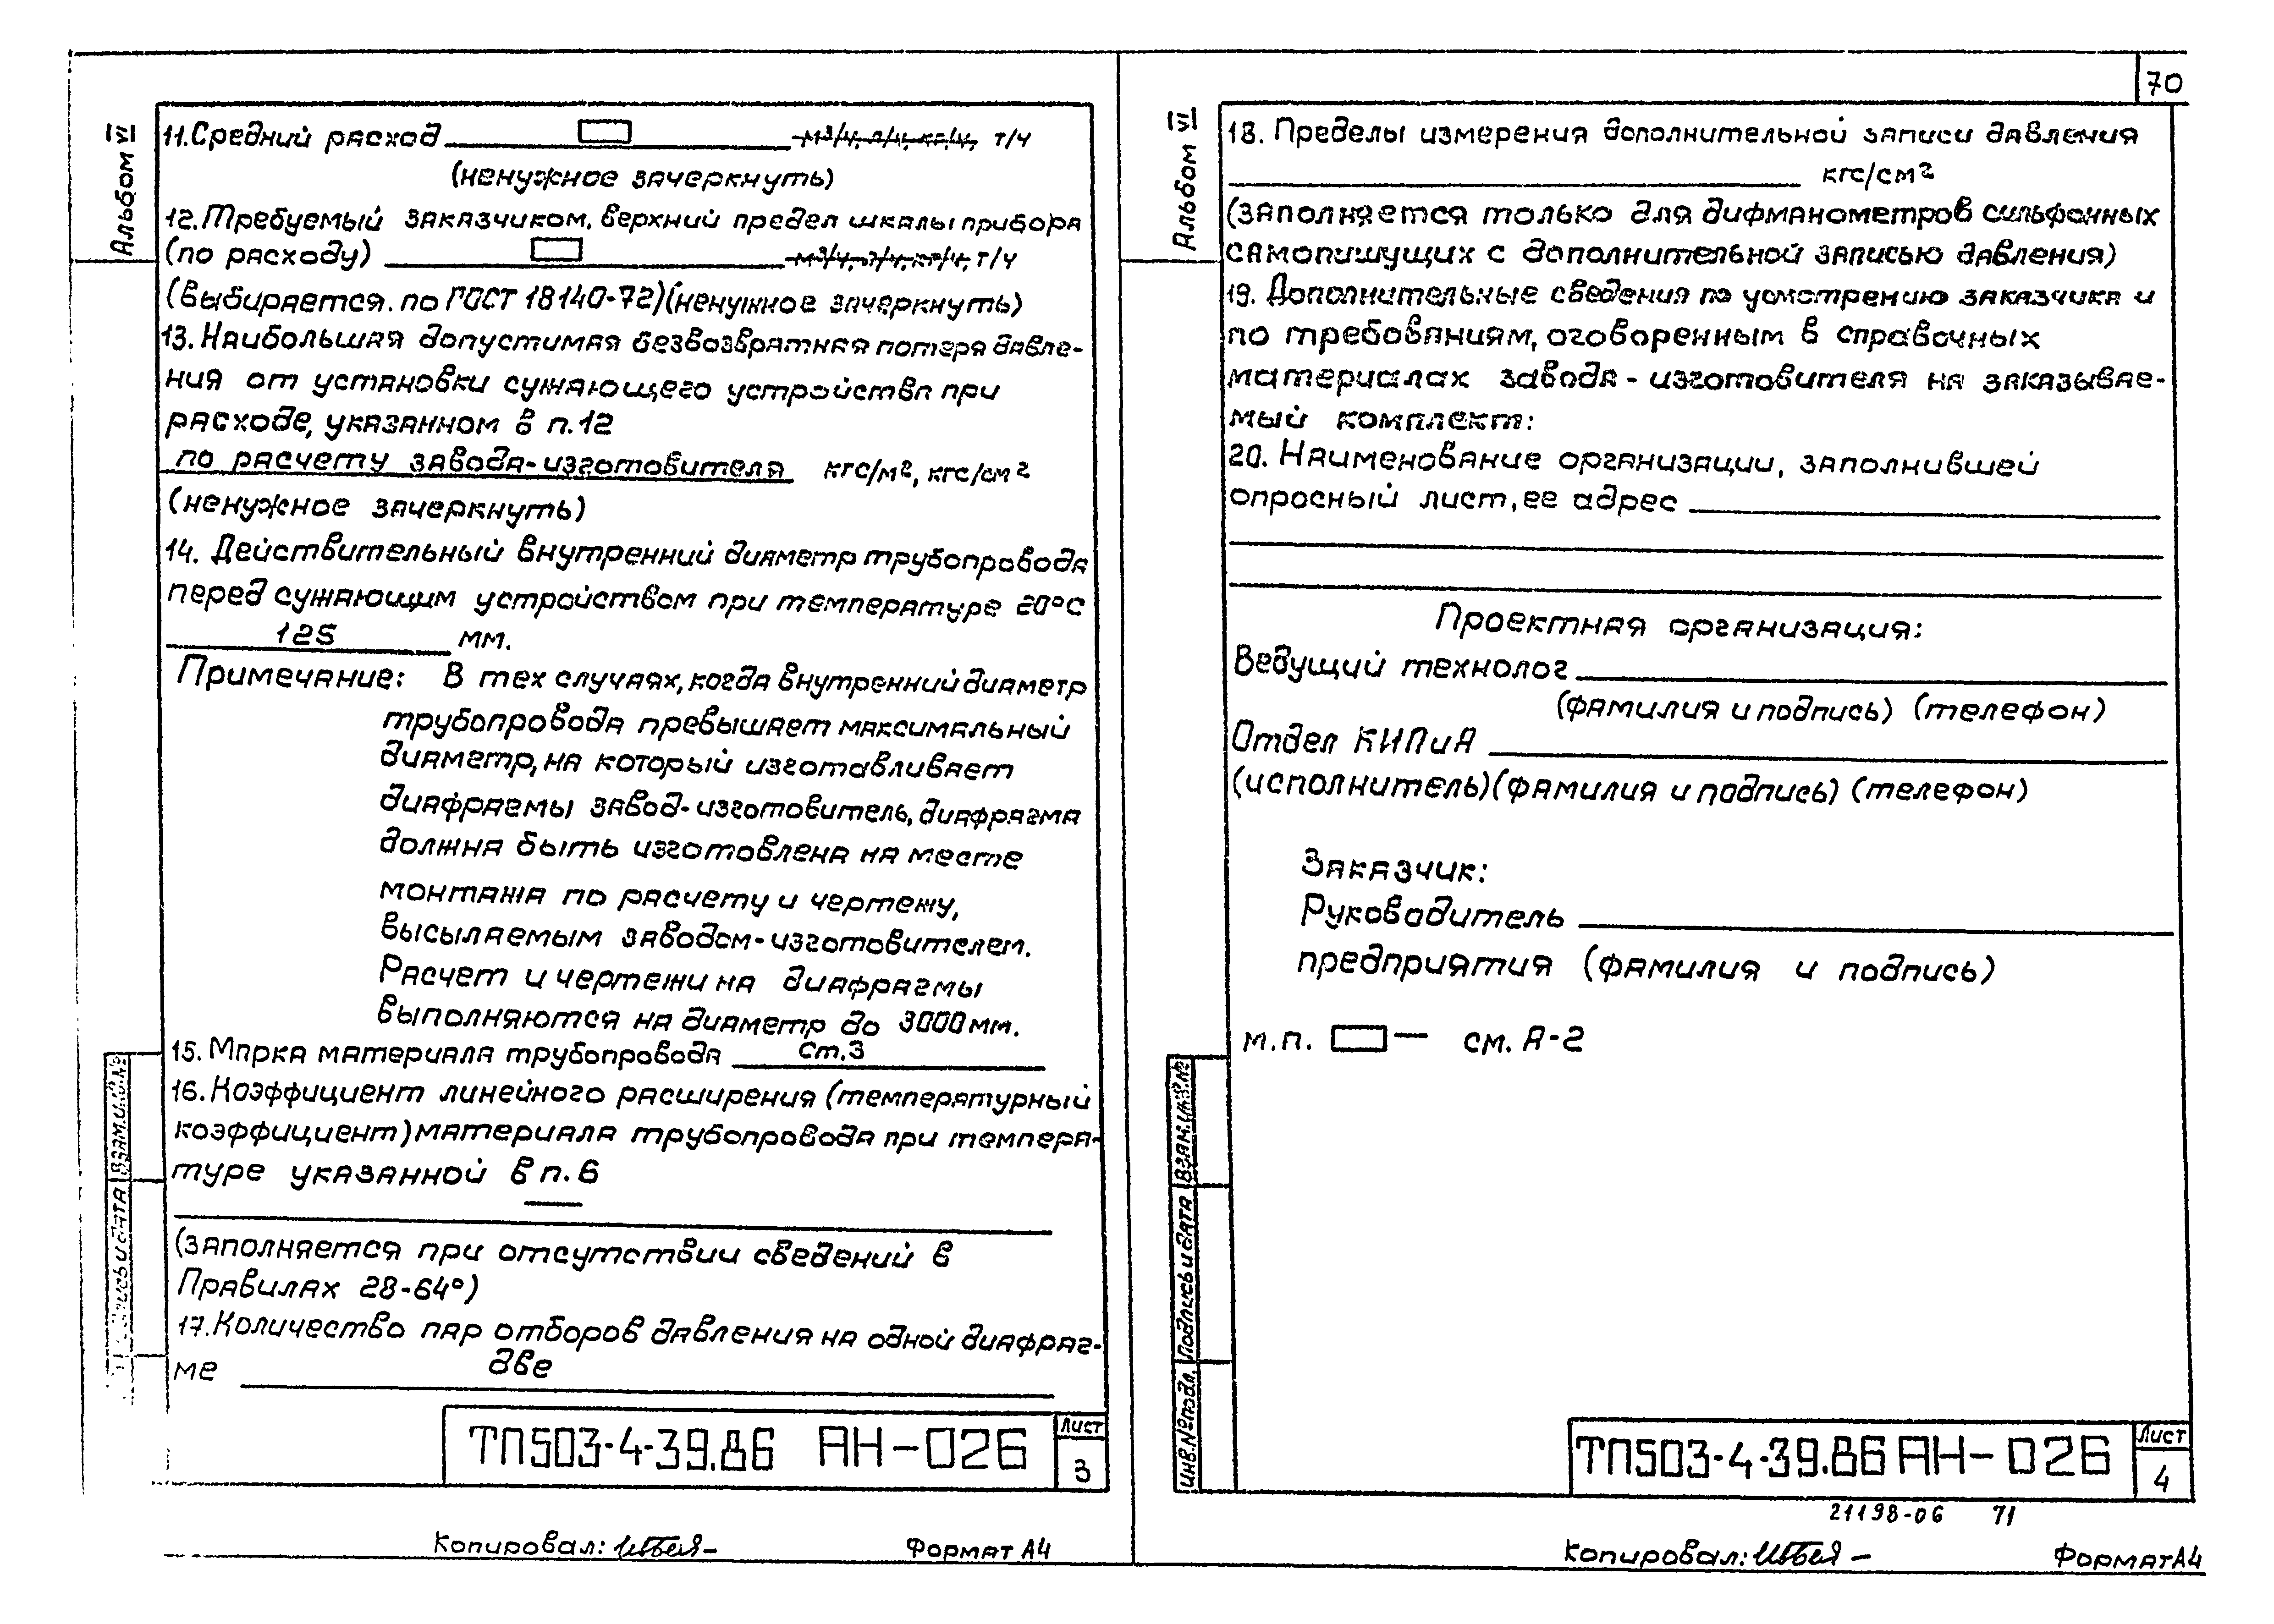 Альбом VI
11. Средний расход м³/ч, л/ч, кг/ч, т/ч
(ненужное зачеркнуть)
12. Требуемый заказчиком, верхний предел шкалы прибора
(по расходу) м³/ч, л/ч, кг/ч, т/ч
(выбирается. по ГОСТ 18140-72) (ненужное зачеркнуть)
13. Наибольшая допустимая безвозвратная потеря давле-
ния от установки сужающего устройства при
расходе, указанном в п.12
по расчету завода-изготовителя кгс/м², кгс/см²
(ненужное зачеркнуть)
14. Действительный внутренний диаметр трубопровода
перед сужающим устройством при температуре 20°С
125 мм.
Примечание: В тех случаях, когда внутренний диаметр
трубопровода превышает максимальный
диаметр, на который изготавливает
диафрагмы завод-изготовитель, диафрагма
должна быть изготовлена на месте
монтажа по расчету и чертежу,
высылаемым заводом-изготовителем.
Расчет и чертежи на диафрагмы
выполняются на диаметр до 3000 мм.
15. Марка материала трубопровода Ст.3
16. Коэффициент линейного расширения (температурный
коэффициент) материала трубопровода при темпера-
туре указанной в п. 6
—
(заполняется при отсутствии сведений в
Правилах 28-64°)
17. Количество пар отборов давления на одной диафраг-
ме две
ТП503-4-39.86 АН-026
Лист
3
Копировал:
Формат А4
70
Альбом VI
18. Пределы измерения дополнительной записи давления
кгс/см²
(заполняется только для дифманометров сильфонных
самопишущих с дополнительной записью давления)
19. Дополнительные сведения по усмотрению заказчика и
по требованиям, оговоренным в справочных
материалах завода-изготовителя на заказывае-
мый комплект:
20. Наименование организации, заполнившей
опросный лист, ее адрес
Проектная организация:
Ведущий технолог
(фамилия и подпись) (телефон)
Отдел КИПиА
(исполнитель) (фамилия и подпись) (телефон)
Заказчик:
Руководитель
предприятия (фамилия и подпись)
м.п. — см. А-2
Взам.инв.№
Подпись и дата
Инв.№ подл.
ТП503-4-39.86 АН-026
Лист
4
21198-06 71
Копировал:
Формат А4